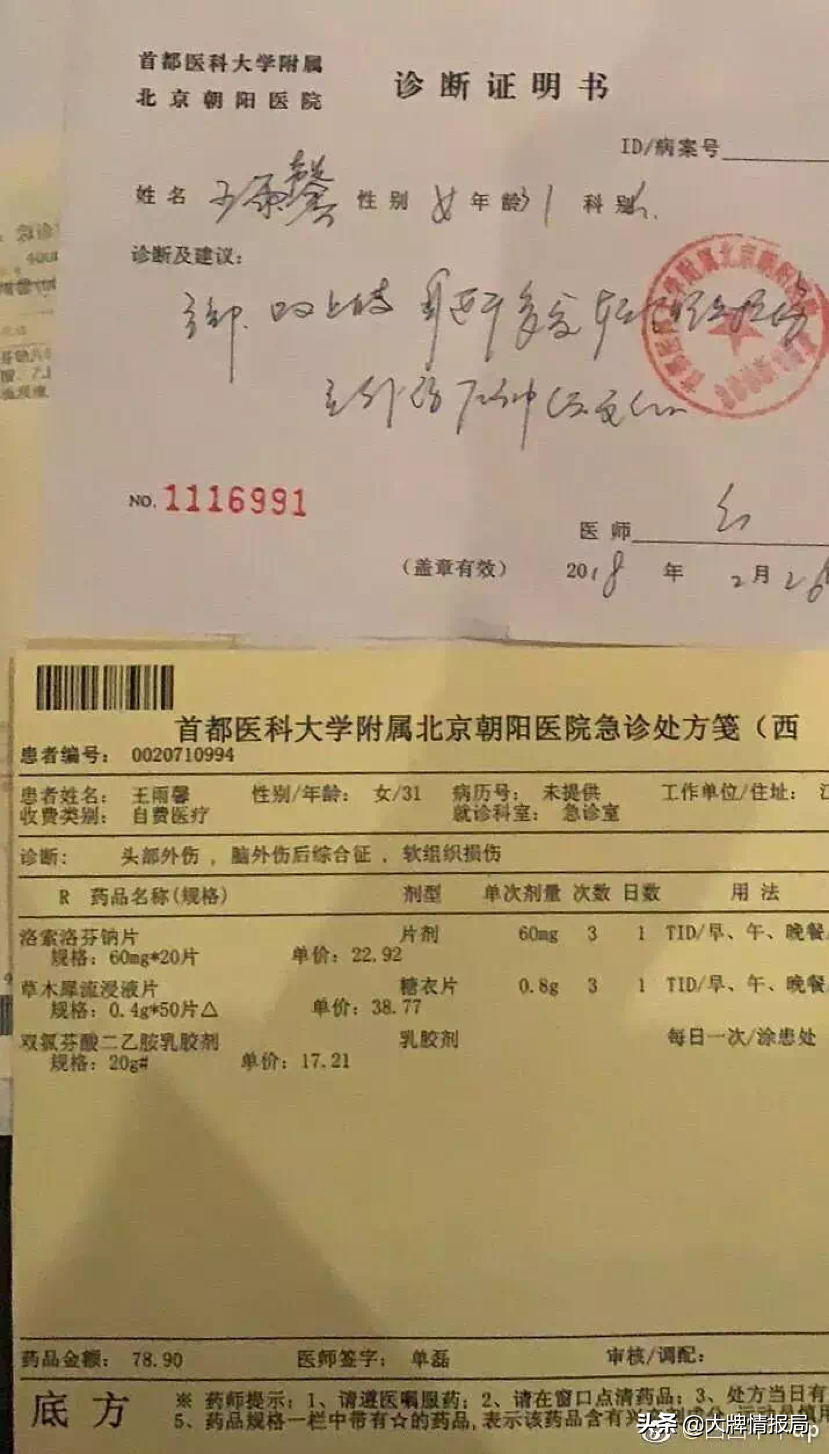 首都医科大学附属
北京朝阳医院
诊断证明书
ID/病案号
姓名 王雨馨 性别 女 年龄 31 科别
诊断及建议：
头部、双上肢
NO. 1116991
医师
（盖章有效） 2018 年 2 月 26
首都医科大学附属北京朝阳医院急诊处方笺（西
患者编号： 0020710994
患者姓名： 王雨馨 性别/年龄： 女/31 病历号： 未提供 工作单位/住址： 江
收费类别： 自费医疗 就诊科室： 急诊室
诊断： 头部外伤 ，脑外伤后综合征 ．软组织损伤
R 药品名称(规格) 剂型 单次剂量 次数 日数 用 法
洛索洛芬钠片 片剂 60mg 3 1 TID/早、午、晚餐
规格：60mg*20片 单价：22.92
草木犀流浸液片 糖衣片 0.8g 3 1 TID/早、午、晚餐
规格：0.4g*50片△ 单价：38.77
双氯芬酸二乙胺乳胶剂 乳胶剂 每日一次/涂患处
规格：20g# 单价：17.21
药品金额： 78.90 医师签字： 单磊 审核/调配：
底方 ※ 药师提示：1、请遵医嘱服药；2、请在窗口点清药品；3、处方当日有
5、药品规格一栏中带有☆的药品,表示该药品含有兴
头条 @大牌情报局